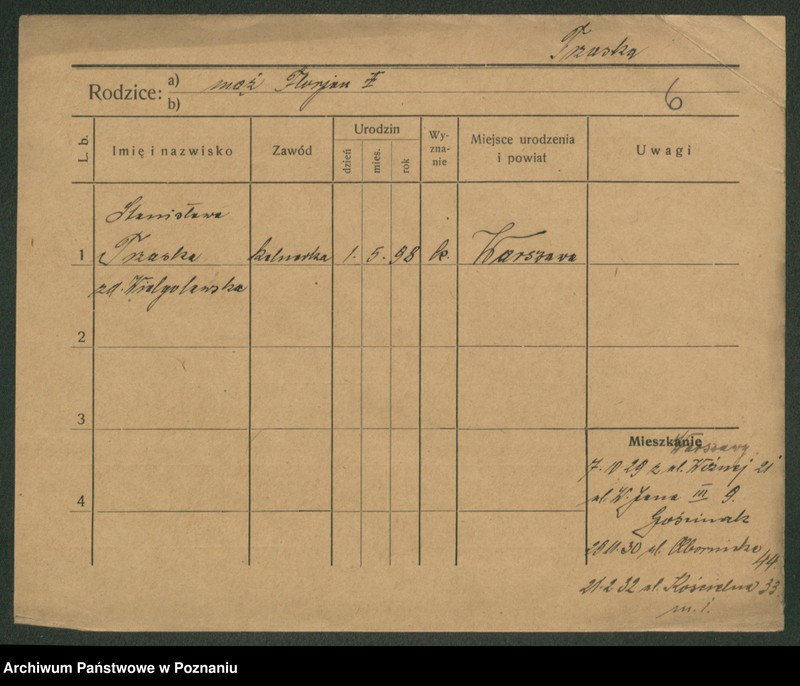 Traska
Rodzice: a) mąż Florjan T
b)
6
L. b.
Imię i nazwisko
Zawód
Urodzin
dzień
mies.
rok
Wy-
zna-
nie
Miejsce urodzenia
i powiat
Uwagi
Stanisława
1 Traska kelnerka 1. 5. 98 Warszawa
zd. Wielgolewska
2
3
4
Mieszkanie
Warszawy
7. 29 z ul. 21
ul. W. Jana III 9.
Gościniak
30 ul. Obornicka 44
21.2.32 ul. Kościelna 33
m. 1.
Archiwum Państwowe w Poznaniu